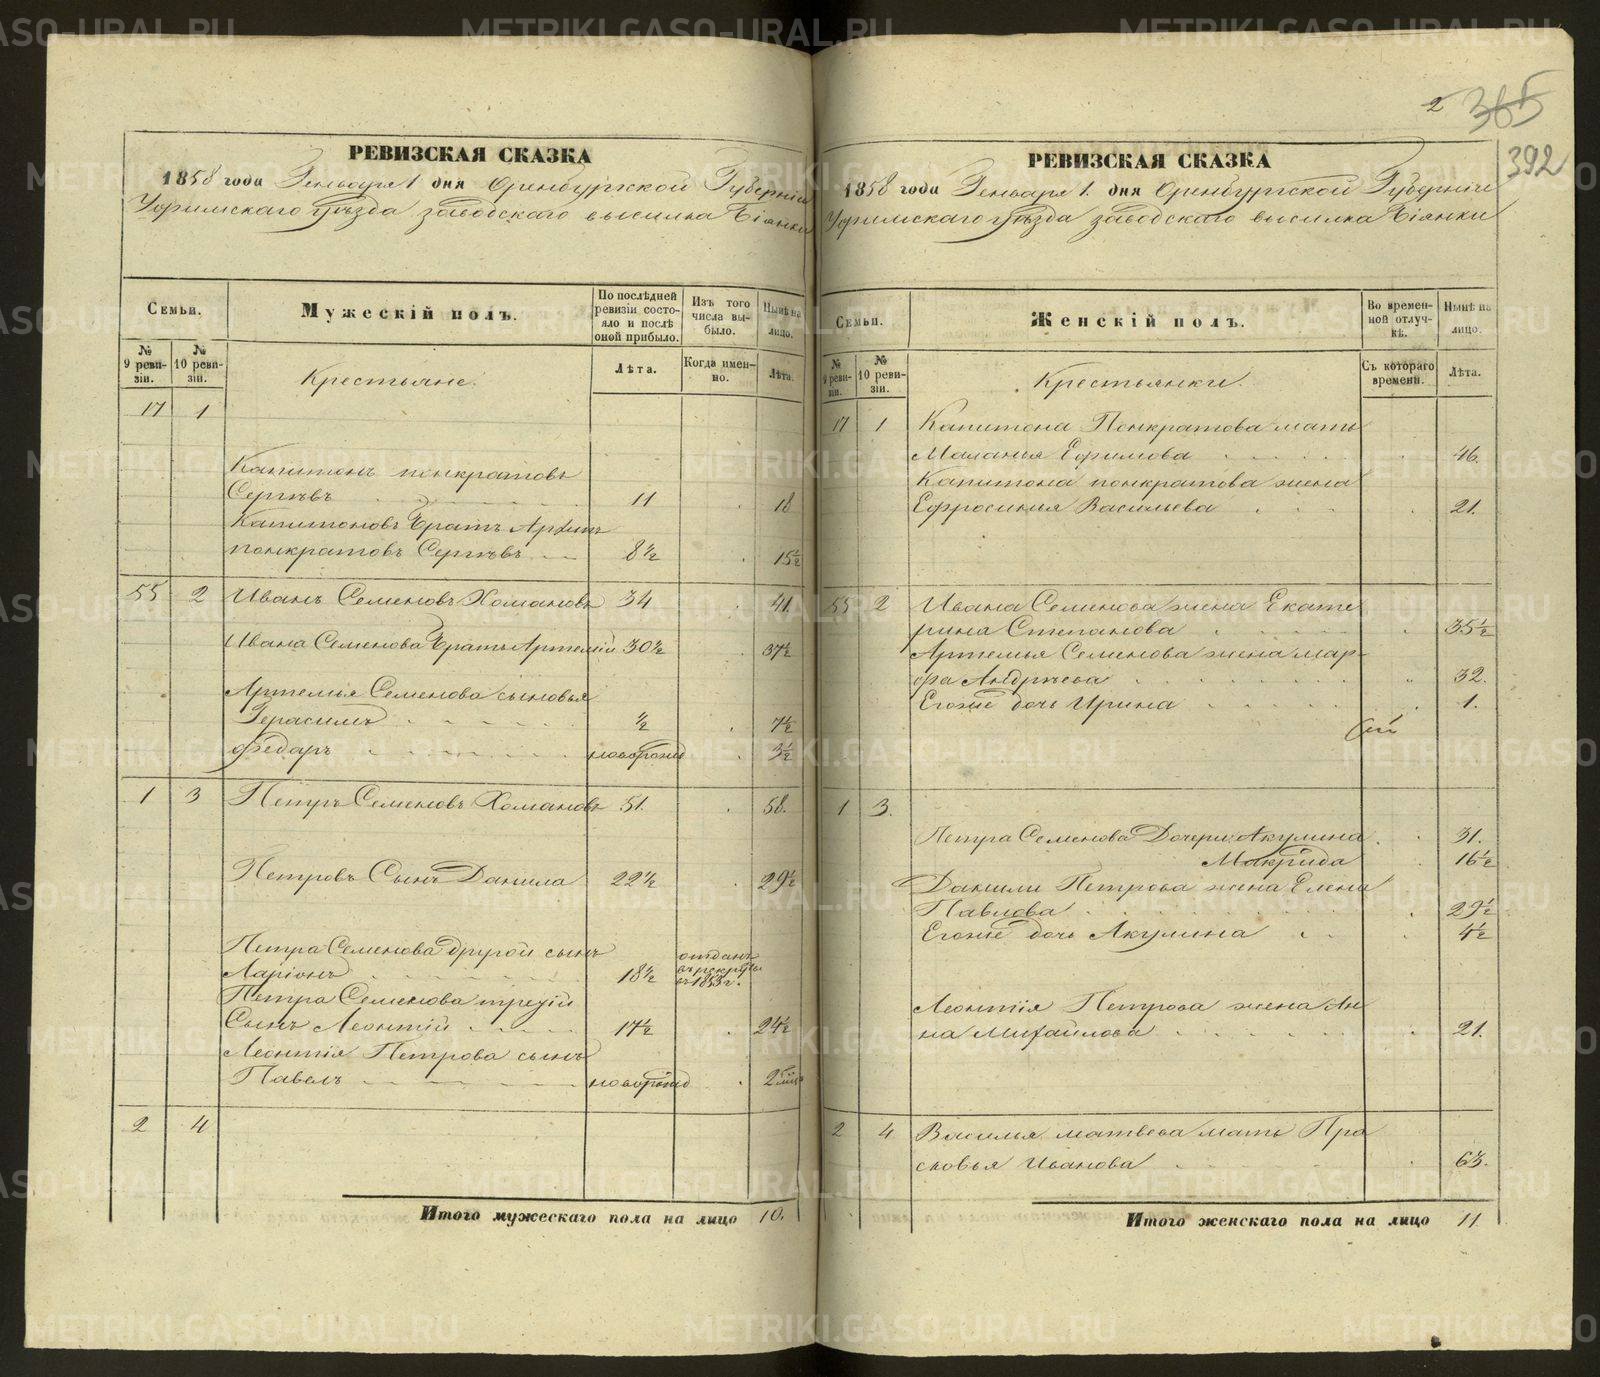 2 365
392
РЕВИЗСКАЯ СКАЗКА
1858 года Генваря 1 дня Оренбургской Губерніи
Уфимскаго уѣзда заводскаго высилка Біянки
Семьи.
Мужескій полъ.
По послѣдней ревизіи состояло и послѣ оной прибыло.
Изъ того числа выбыло.
Нынѣ на лицо.
№ 9 ревизіи.
№ 10 ревизіи.
Крестьяне.
Лѣта.
Когда именно.
Лѣта.
17 1
Капитонъ понкратовъ
Сергѣевъ 11 18
Капитоновъ братъ
понкратовъ Сергѣевъ 8½ 15½
55 2 Иванъ Семеновъ Хомановъ 34 41.
Ивана Семенова братъ Артемій 30½ 37½
Артемья Семенова сыновья
Герасимъ ½ 7½
Федаръ новорожд 3½
1 3 Петръ Семеновъ Хомановъ 51. 58.
Петровъ Сынъ Данила 22½ 29½
Петра Семенова другой сынъ
Ларіонъ 18½ отданъ в рекруты в 1853 г.
Петра Семенова третій
Сынъ Леонтій 17½ 24½
Леонтія Петрова сынъ
Павелъ новорожд 2
2 4
Итого мужескаго пола на лицо 10.
РЕВИЗСКАЯ СКАЗКА
1858 года Генваря 1. дня Оренбургской Губерніи
Уфимскаго уѣзда заводскаго высилка Біянки
Семьи.
Женскій полъ.
Во временной отлучкѣ.
Нынѣ на лицо.
№ 9 ревизіи.
№ 10 ревизіи.
Крестьянки.
Съ котораго времени.
Лѣта.
17 1 Капитона Понкратова мать
Маланья Ефимова 46.
Капитона понкратова жена
Ефросинья Васильева 21.
55 2 Ивана Семенова жена Екате
рина Степанова 35½
Артемья Семенова жена мар-
фа Андрѣева 32.
Егоже дочь Ирина 1.
1 3.
Петра Семенова Дочери Акулина 31.
Макрида 16½
Данилы Петрова жена Елена
Павлова 29½
Егоже дочь Акулина 4½
Леонтія Петрова жена Ан
на Михайлова 21.
2 4 Василья матвева мать Пра
сковья Иванова 63.
Итого женскаго пола на лицо 11
METRIKI.GASO-URAL.RU